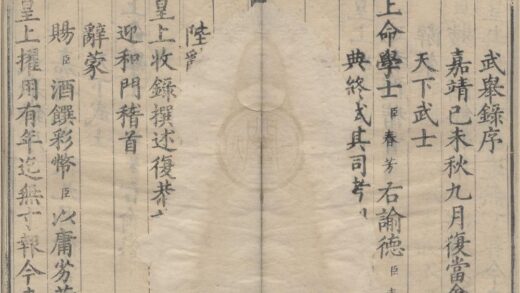 武舉錄序
嘉靖己未秋九月復當會
天下武士
上命學士臣春芳右諭德臣
典終式其司考
陸
皇上收錄撰述復恭
迎和門稽首
辭蒙
賜臣酒饌彩幣臣以庸劣
皇上擢用有年迄無寸報今